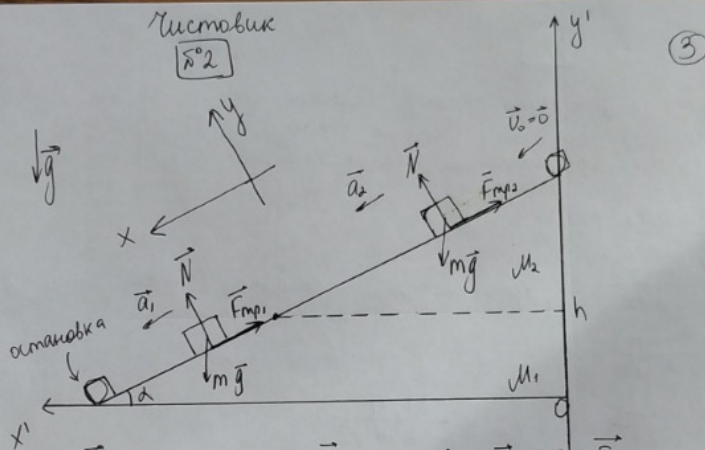 Чистовик
№2
③
y'
y
x
g
V₀=0
a₂
N
Fтр2
mg
M₂
h
a₁
N
Fтр1
mg
остановка
α
M₁
O
x'